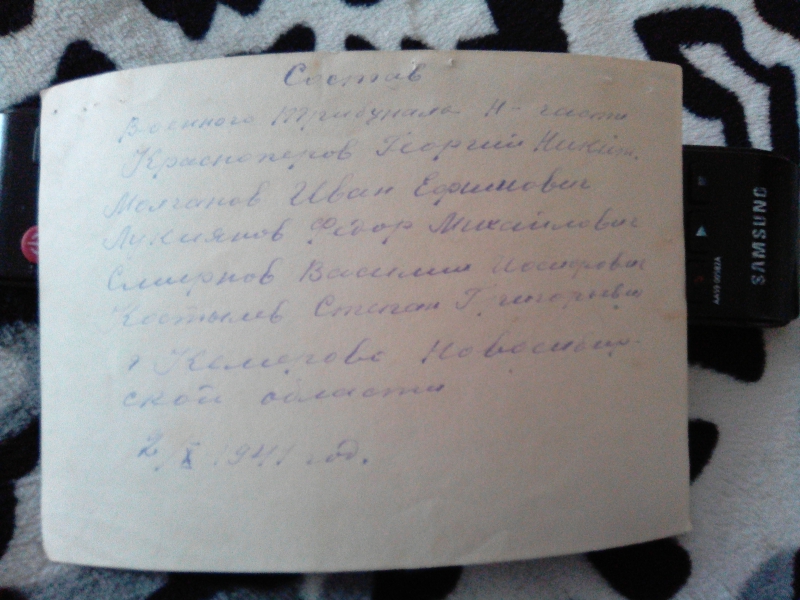 Состав
Военного Трибунала Н-части
Красноперов Георгий Никит.
Молчанов Иван Ефимович
Лукиянов Фёдор Михайлович
Смирнов Василий Иосифович
Костылев Степан Григорьевич
г Кемерово Новосибир-
ской области
2/X 1941 год.
SAMSUNG
AA59-00582A